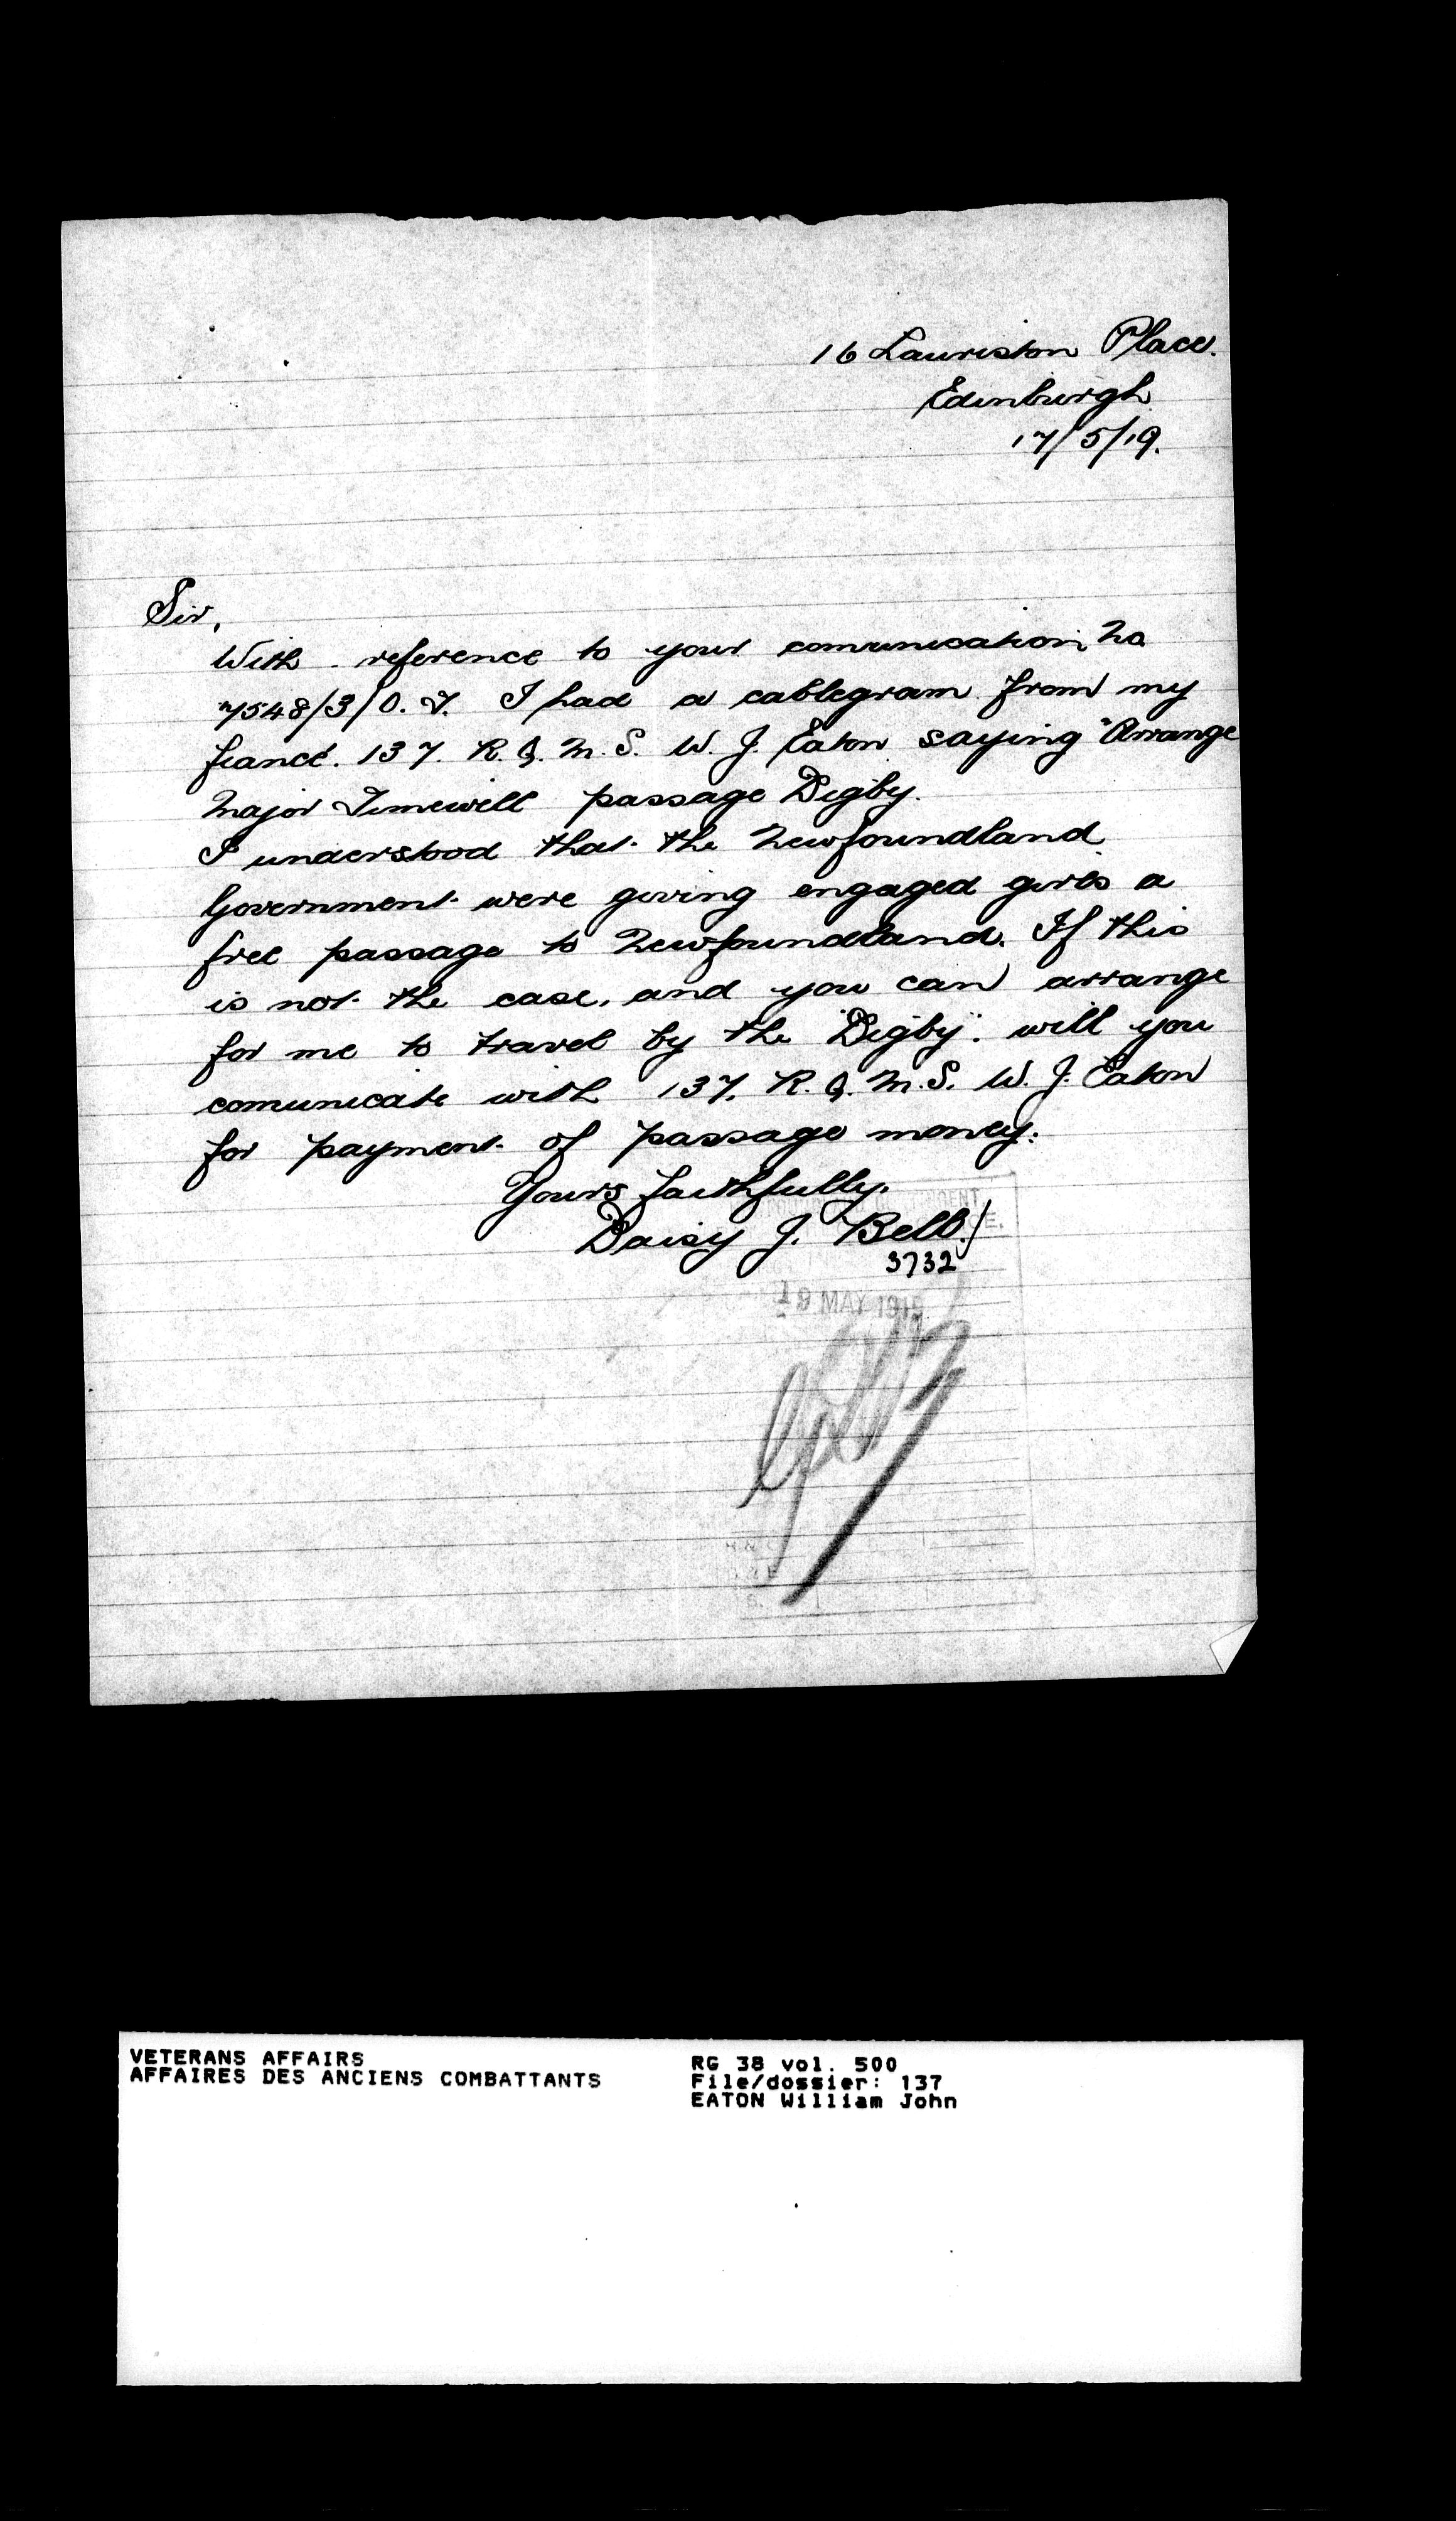 16 Lauriston Place.
Edinburgh
17/5/19.
Sir,
With reference to your comunication No
7548/3/O.T. I had a cablegram from my
fiancé. 137. R. Q. M. S. W. J. Eaton saying "Arrange
Major Timewell passage Digby.
I understood that the Newfoundland
Government were giving engaged girls a
free passage to Newfoundland. If this
is not the case, and you can arrange
for me to travel by the "Digby". will you
comunicate with 137. R. Q. M. S. W. J. Eaton
for payment of passage money.
Yours faithfully.
Daisy J. Bell.
3732
19 MAY 1919
VETERANS AFFAIRS
AFFAIRES DES ANCIENS COMBATTANTS
RG 38 vol. 500
File/dossier: 137
EATON William John